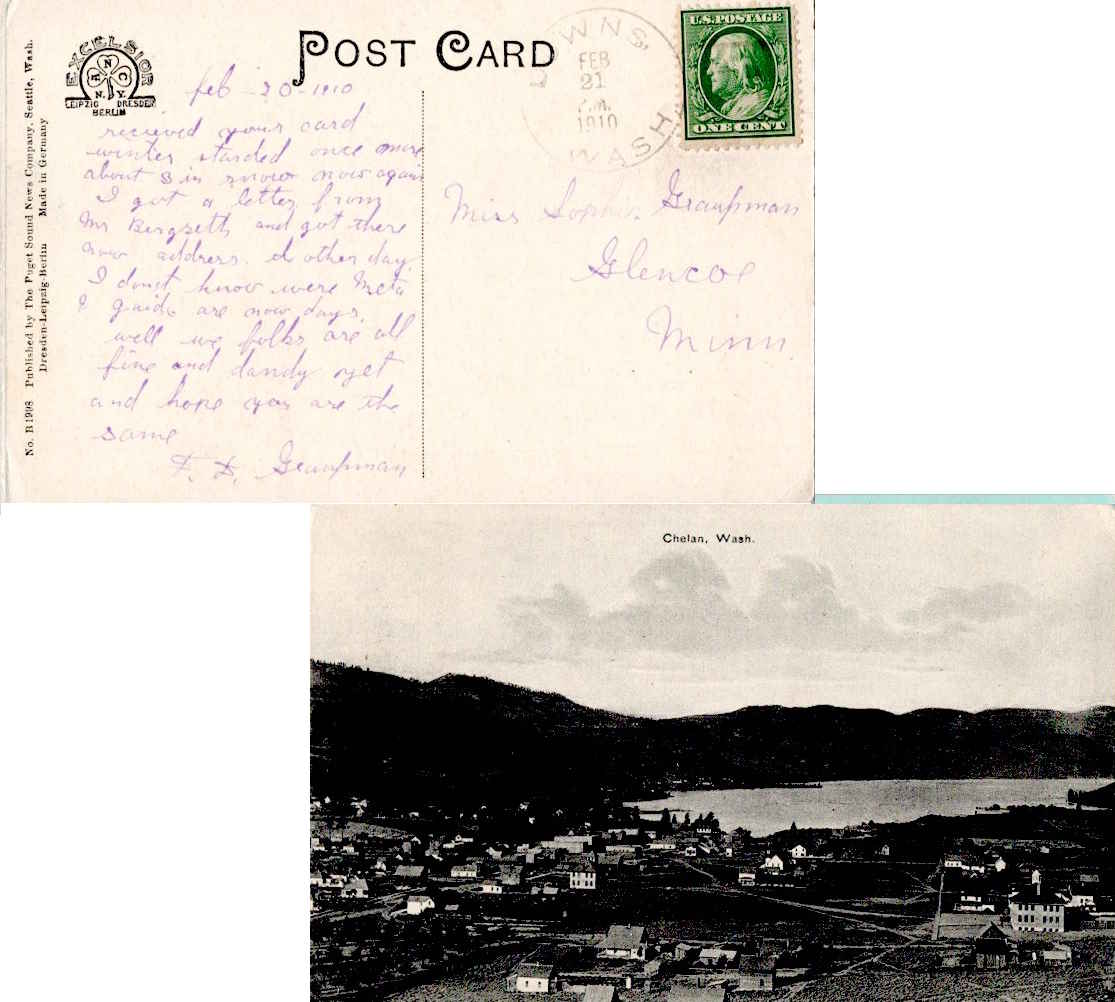 POST CARD
EXCELSIOR
A N C
N.Y.
LEIPZIG DRESDEN
BERLIN
No. B 1998 Published by The Puget Sound News Company, Seattle, Wash.
Dresden-Leipzig-Berlin Made in Germany
WNS,
FEB
21
P.M.
1910
WASH
U.S. POSTAGE
ONE CENT
feb - 20 - 1910
recieved your card
winter starded once more
about 8 in snow now again
I got a letter from
Mr Bergseth and got there
now address. d other day.
I dont know were Meta
& guido are now days.
well we folks are all
fine and dandy yet
and hope you are the
same
Graupman
Miss Sophie Graupman
Glencoe
Minn.
Chelan, Wash.